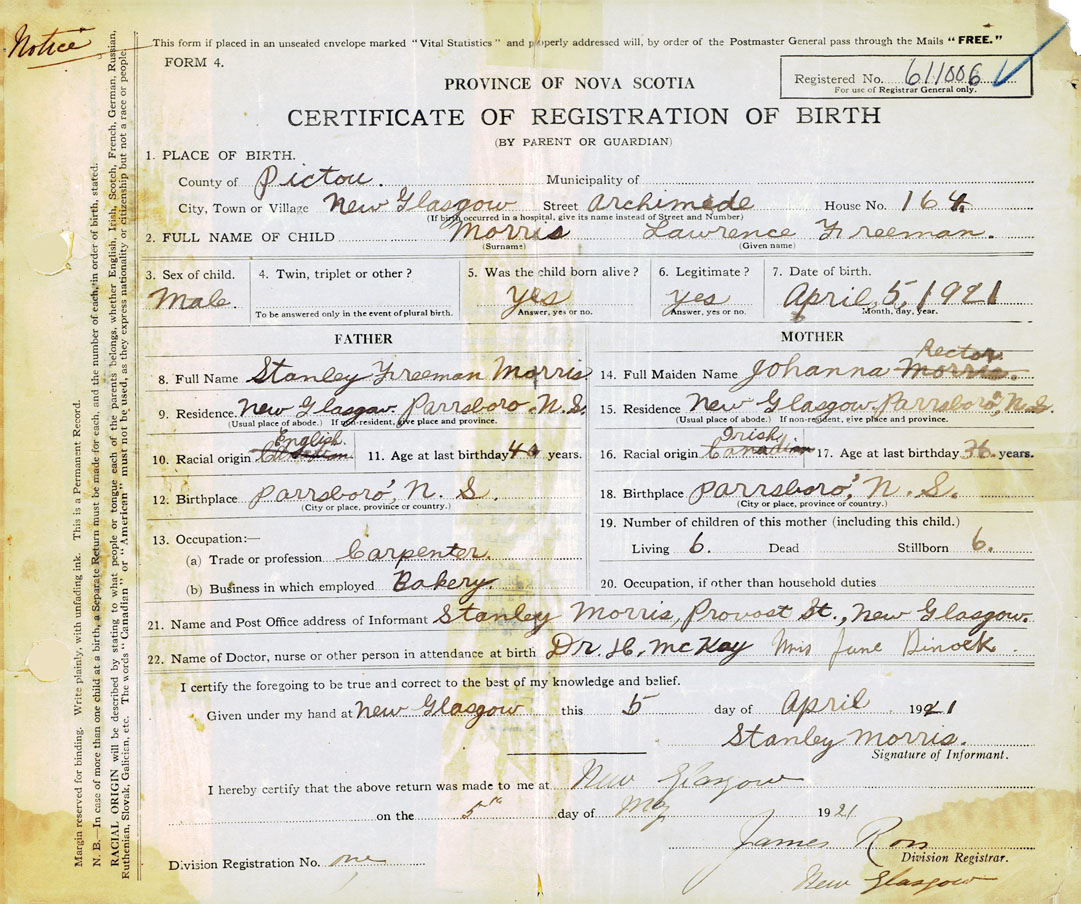 Notice
This form if placed in an unsealed envelope marked "Vital Statistics" and properly addressed will, by order of the Postmaster General pass through the Mails "FREE."
FORM 4.
Registered No. 611006
For use of Registrar General only.
PROVINCE OF NOVA SCOTIA
CERTIFICATE OF REGISTRATION OF BIRTH
(BY PARENT OR GUARDIAN)
1. PLACE OF BIRTH.
County of Pictou. Municipality of
City, Town or Village New Glasgow Street Archimede House No. 164
(If birth occurred in a hospital, give its name instead of Street and Number)
2. FULL NAME OF CHILD Morris Lawrence Freeman.
(Surname) (Given name)
3. Sex of child. 4. Twin, triplet or other? 5. Was the child born alive? 6. Legitimate? 7. Date of birth.
Male Yes Yes April 5, 1921
To be answered only in the event of plural birth. Answer, yes or no. Answer, yes or no. Month, day, year.
FATHER
8. Full Name Stanley Freeman Morris
9. Residence. New Glasgow. Parrsboro. N.S.
(Usual place of abode.) If non-resident, give place and province.
English
10. Racial origin Canadian 11. Age at last birthday 40 years.
12. Birthplace Parrsboro, N. S.
(City or place, province or country.)
13. Occupation:—
(a) Trade or profession Carpenter
(b) Business in which employed Bakery.
MOTHER
Rector
14. Full Maiden Name Johanna Morris
15. Residence New Glasgow. Parrsboro, N.S.
(Usual place of abode.) If non-resident, give place and province.
Irish
16. Racial origin Canadian 17. Age at last birthday 36 years.
18. Birthplace Parrsboro, N. S.
(City or place, province or country.)
19. Number of children of this mother (including this child.)
Living 6. Dead Stillborn 6.
20. Occupation, if other than household duties
21. Name and Post Office address of Informant Stanley Morris, Provost St., New Glasgow.
22. Name of Doctor, nurse or other person in attendance at birth Dr. H. McKay Mrs June
I certify the foregoing to be true and correct to the best of my knowledge and belief.
Given under my hand at New Glasgow this 5 day of April 1921
Stanley Morris.
Signature of Informant.
I hereby certify that the above return was made to me at New Glasgow
on the 5th day of May 1921
James Ross
Division Registrar.
Division Registration No. one
New Glasgow
Margin reserved for binding. Write plainly, with unfading ink. This is a Permanent Record.
N. B.—In case of more than one child at a birth, a Separate Return must be made for each, and the number of each, in order of birth, stated.
RACIAL ORIGIN will be described by stating to what people or tongue each of the parents belongs, whether English, Irish, Scotch, French, German, Russian,
Ruthenian, Slovak, Galician, etc. The words "Canadian" or "American" must not be used, as they express nationality or citizenship but not a race or people.